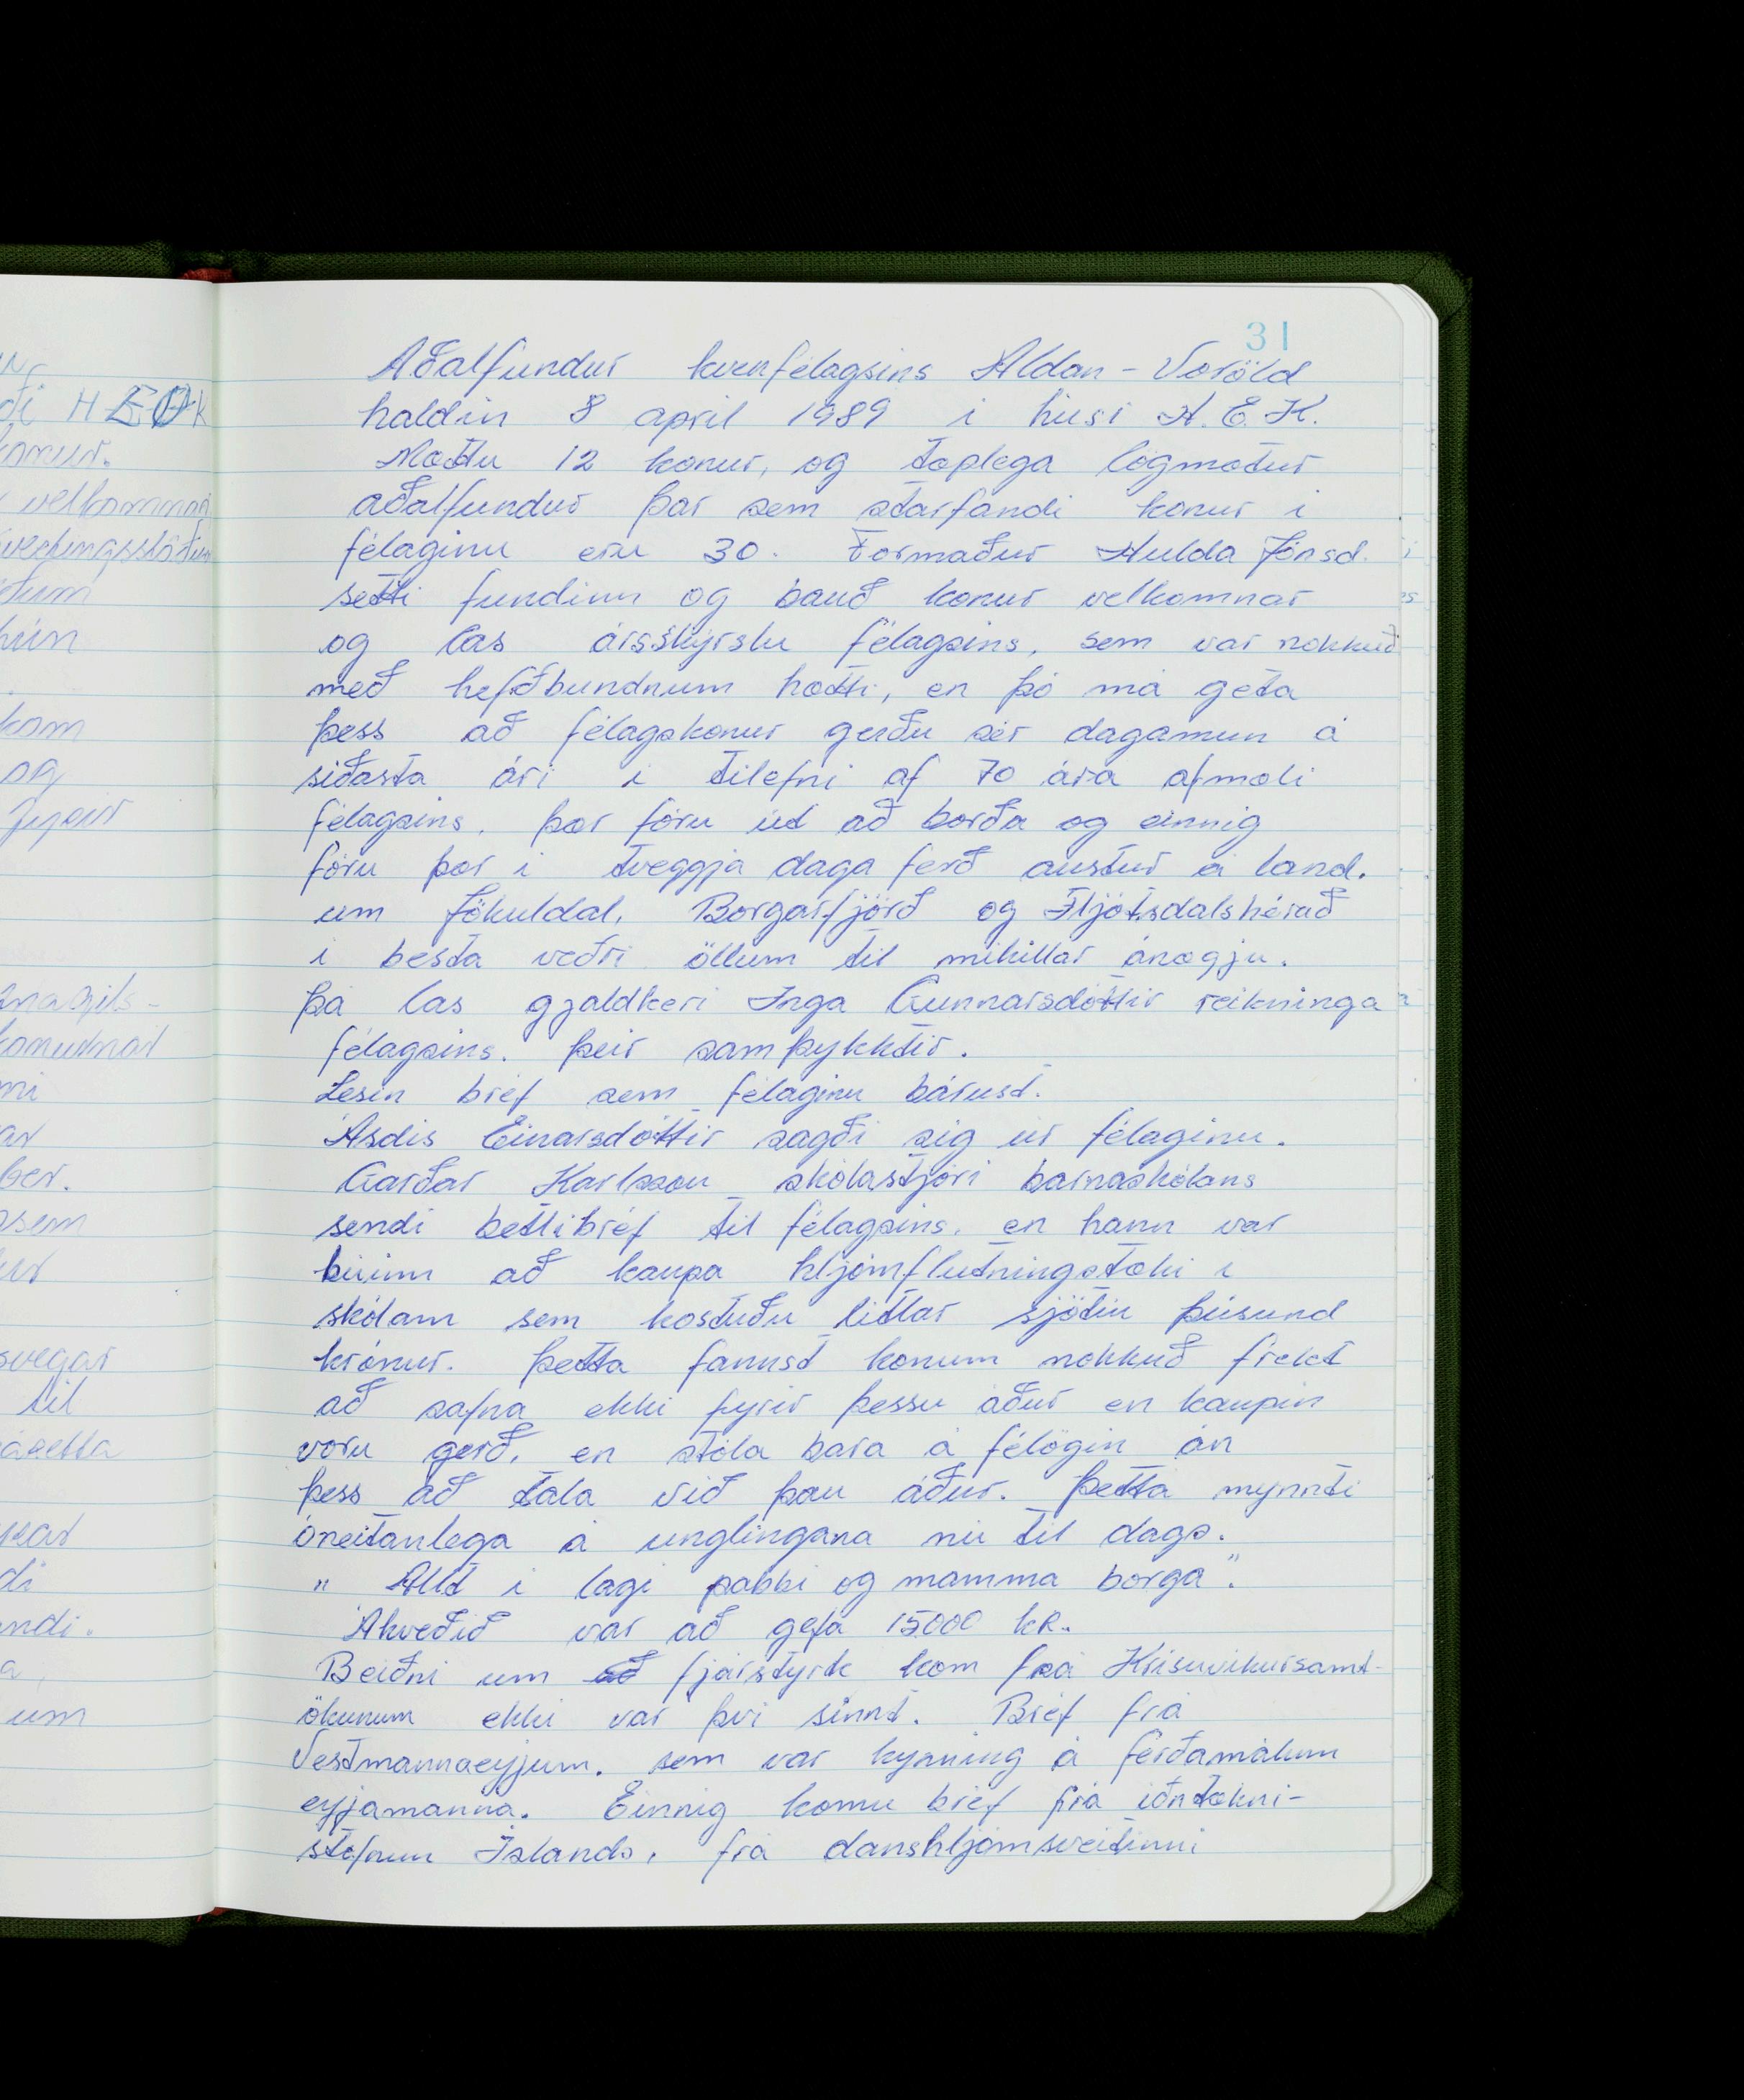 31
Aðalfundur kvenfélagsins Aldan - Voröld
haldin 8 april 1989 i húsi H.E.K.
Mættu 12 konur, og tæplega lögmætur
aðalfundur þar sem starfandi konur i
félaginu eru 30. Formaður Hulda Jónsd.
setti fundinn og bauð konur velkomnar
og las ársskýrslu félagsins, sem var nokkuð
með hefðbundnum hætti, en þó má geta
þess að félagskonur gerðu sér dagamun á
síðasta ári i tilefni af 70 ára afmæli
félagsins, þær fóru út að borða og einnig
fóru þær i tveggja daga ferð austur á land.
um Jökuldal, Borgarfjörð og Fljótsdalshérað
i besta veðri öllum til mikillar ánægju.
þá las gjaldkeri Inga Gunnarsdóttir reikninga
félagsins. þeir samþykktir.
Lesin bréf sem félaginu bárust.
Ásdis Einarsdóttir sagði sig úr félaginu.
Garðar Karlsson skólastjóri barnaskólans
sendi betlibréf til félagsins, en hann var
búinn að kaupa hljómflutningstæki i
skólam sem kostuðu litlar sjötíu þúsund
krónur. Þetta fannst konum nokkuð frekt
að safna ekki fyrir þessu áður en kaupin
voru gerð, en stóla bara á félögin án
þess að tala við þau áður. Þetta mynnti
óneitanlega á unglingana nú til dags.
" Allt i lagi pabbi og mamma borga".
Ákveðið var að gefa 15000 kR.
Beiðni um að fjárstyrk kom frá Krisuvikursamt-
ökunum ekki var þvi sinnt. Bréf frá
Vestmannaeyjum. sem var kynning á ferðamálum
eyjamanna. Einnig komu bréf frá iðntækni-
stofnun Íslands, frá danshljómsveitinni